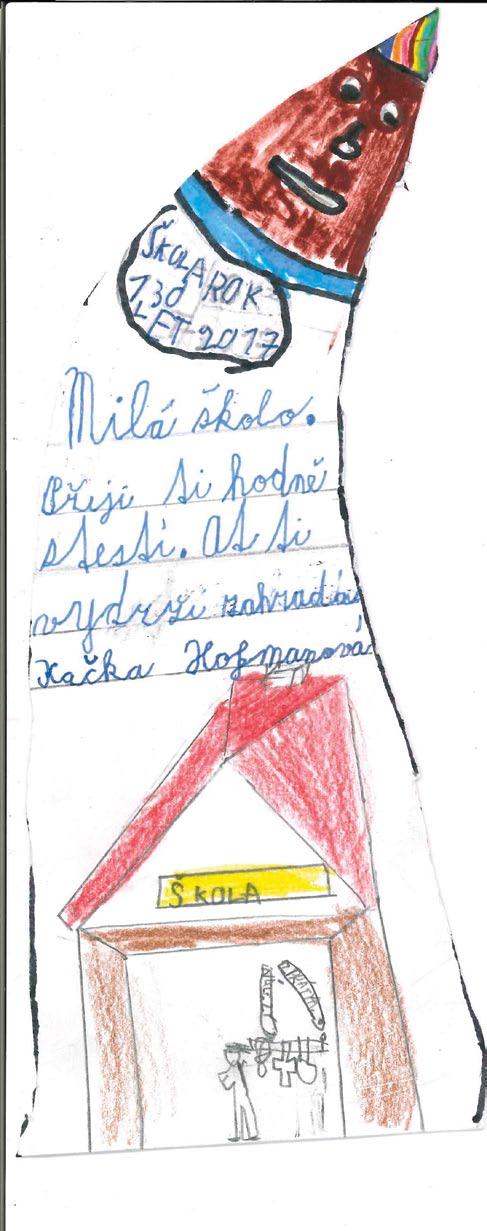 ŠKOLA ROK
130
LET 2017
Milá školo.
Přeji ti hodně
stestí. At ti
vydrží zahrada
Kačka Hofmanová
ŠKOLA